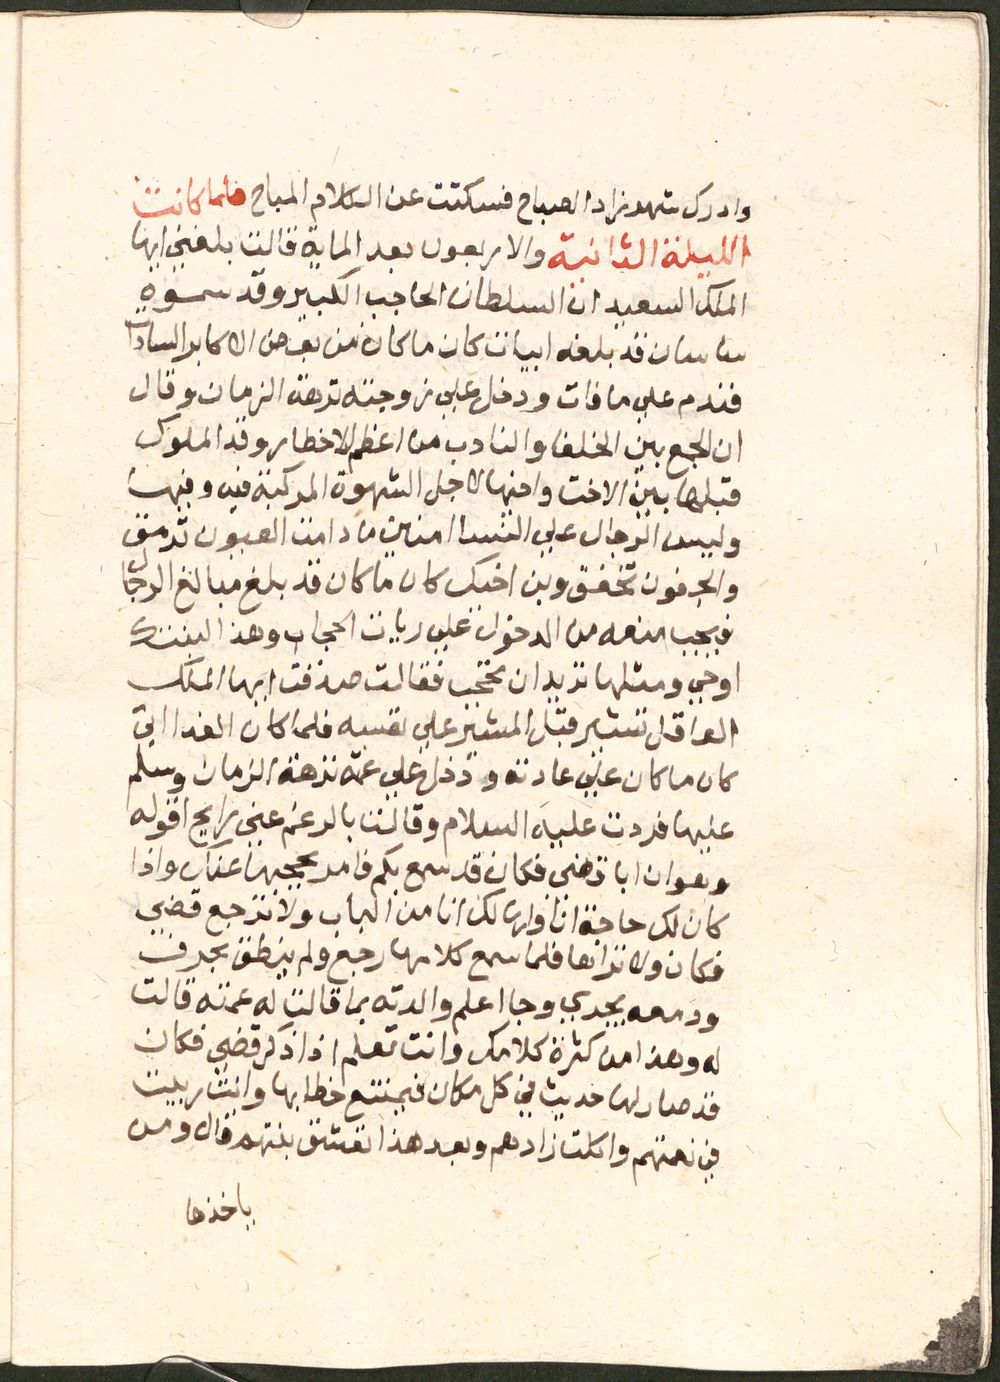 وادرك شهرزاد الصباح فسكتت عن الكلام المباح فلما كانت
الليلة الثانية والاربعون بعد الماية قالت بلغني ايها
الملك السعيد ان السلطان الحاجب الكبير وقد سموه
ساسان قد بلغه ابيات كان ماكان من بعض الاكابر السادات
فندم علي مافات ودخل علي زوجته نزهة الزمان وقال
ان الجمع بين الحلفا والنار من اعظم الاخطار وقد الملوك
قبلها بين الاخت واخيها لاجل الشهوة المركبة فيه وفيها
وليس الرجال علي النسا امنين مادامت العيون ترمق
والجفون تخفق وبن اخيك كان ماكان قد بلغ مبالغ الرجال
فيجب منعه من الدخول علي ربات الحجاب وهذا البنت
اوجي ومثلها تريد ان تحتجب فقالت صدقت ايها الملك
العاقل فلما كان الغد اتي
كان ماكان علي عادته ودخل علي عمته نزهة الزمان وسلم
عليها فردت عليه السلام وقالت بالرغم عني رايح اقوله
وهو ان ابا قضي فكان قد سمع بكم فامر بحجبها عنك واذا
كان لك حاجة انا وارسالك انا من الباب ولا ترجع قضي
فكان ولا تراها فلما سمع كلامها رجع ولم ينطق بحرف
ودمعه يجري وجا اعلم والدته بما قالت له عمته قالت
له وهذا من كثرة كلامك وانت تعلم اذا ذكر قضي فكان
قد صار لها حديث في كل مكان فيمتنع خطابها وانت ربيت
في نعمتهم واكلت زادهم وبعد هذا تعشق بنتهم قال ومن
ياخذها